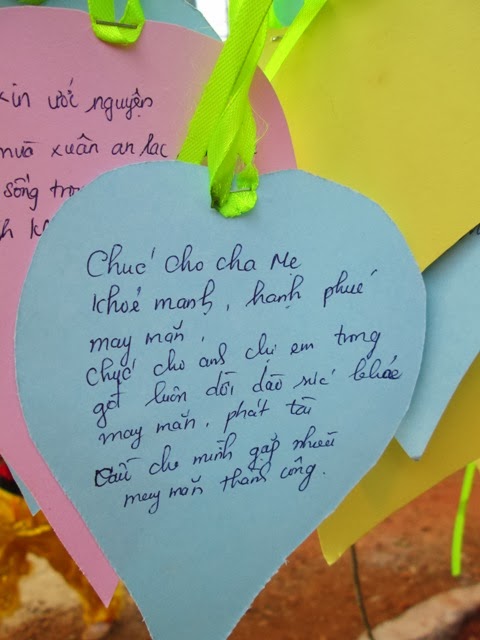 xin ước nguyện
mùa xuân an lạc
sống tro
h kh
Chúc cho cha Mẹ
khoẻ mạnh, hạnh phúc
may mắn,
Chúc cho anh chị em trong
gđ luôn dồi dào sức khỏe
may mắn, phát tài
Cầu cho mình gặp nhiều
may mắn thành công.